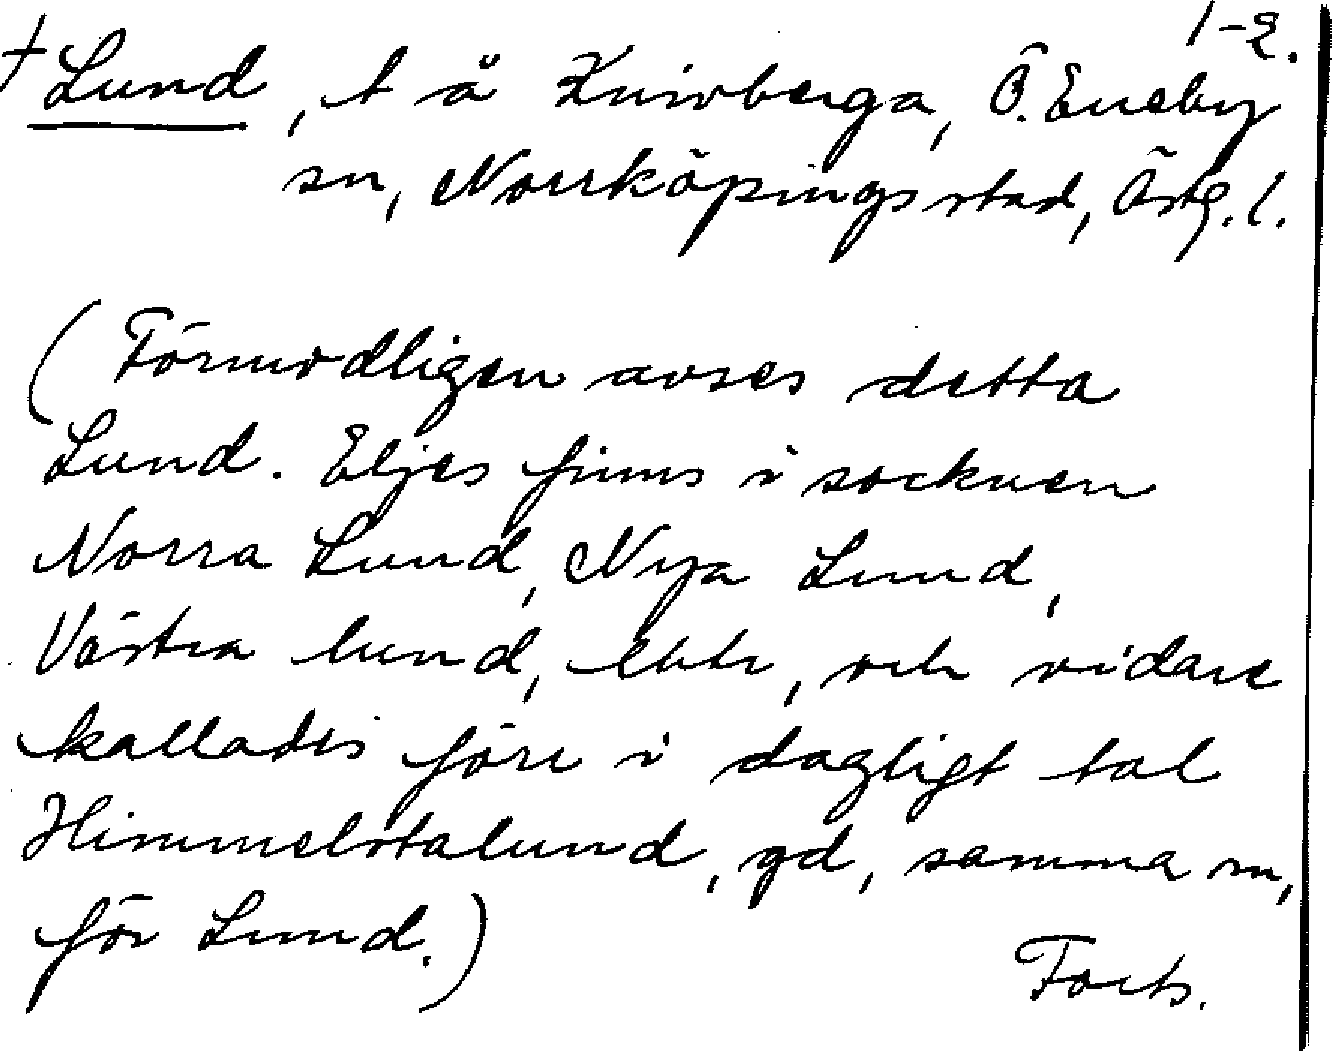 1-2.
† Lund, t å Knivberga, Ö. Eneby
sn, Norrköpings stad, Östg. l.
(Förmodligen avses detta
Lund. Eljes finns i socknen
Norra Lund, Nya Lund,
Västra lund, lhtr, och vidare
kallades förr i dagligt tal
Himmelstalund, gd, samma sn,
för Lund.)
Forts.